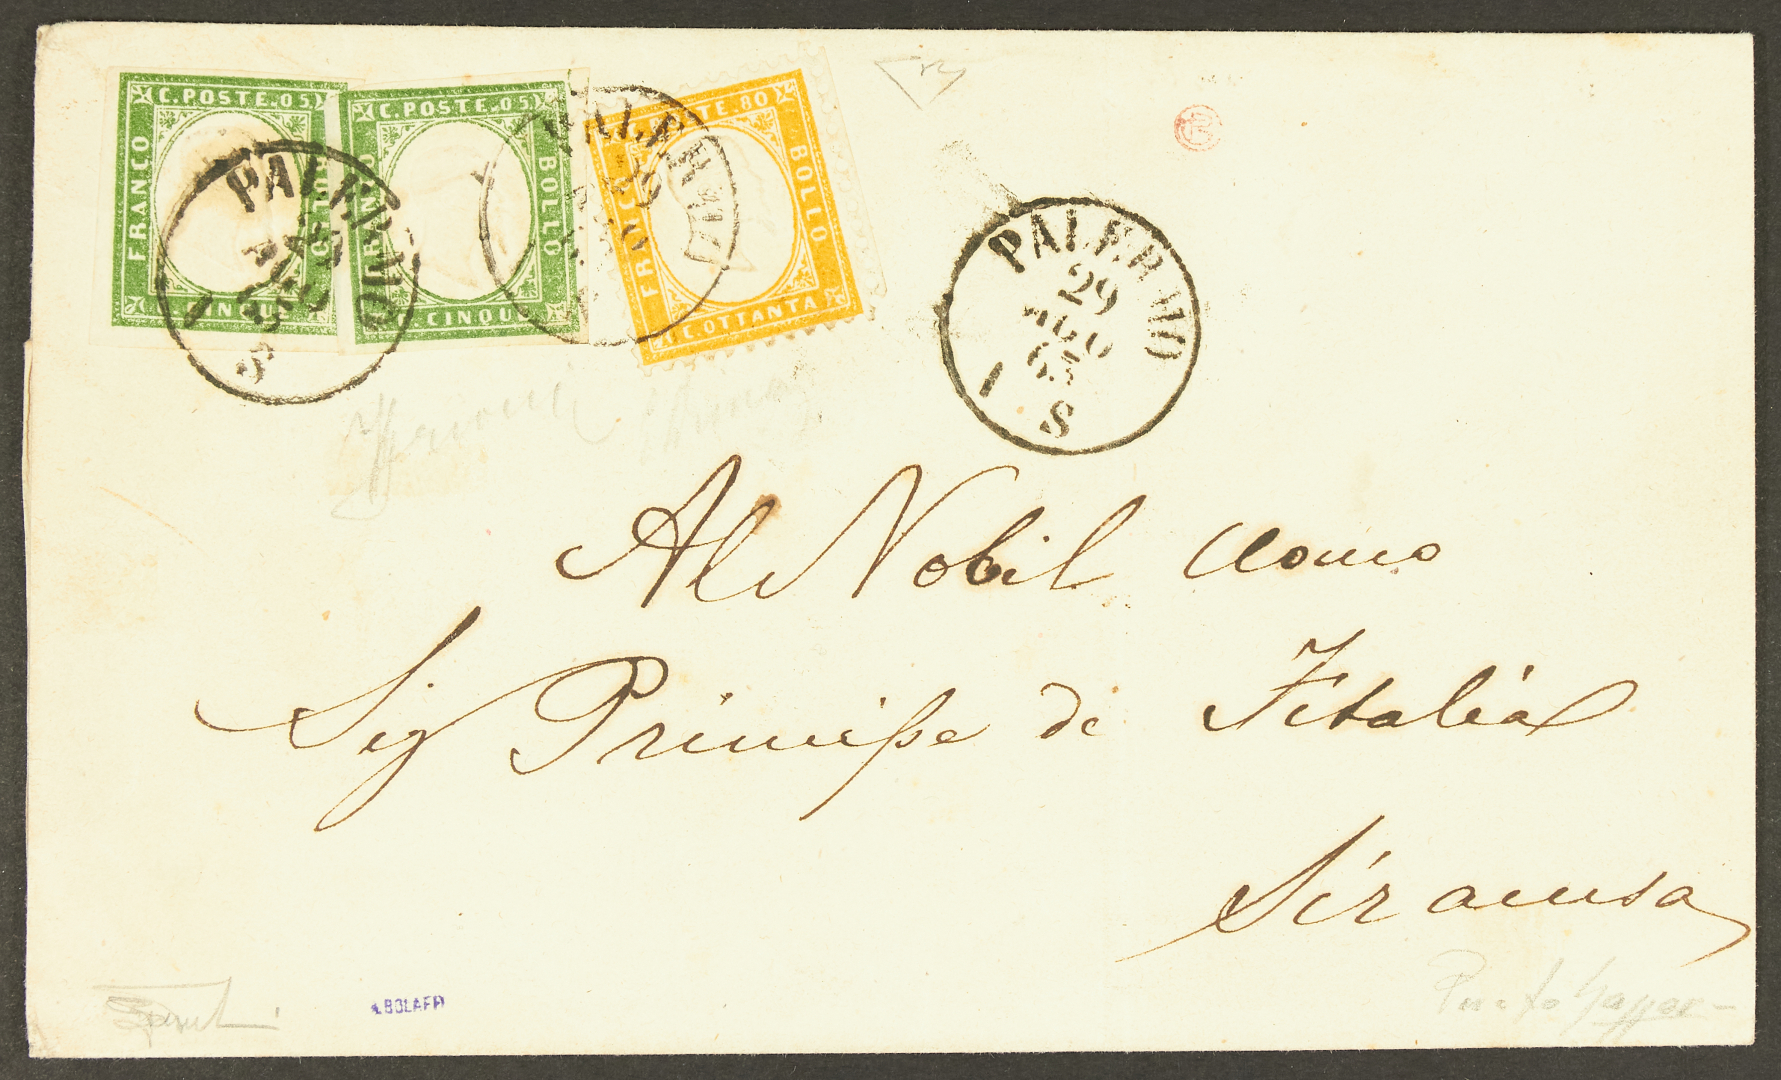 C. POSTE. 05
FRANCO
BOLLO
C. CINQUE
C. POSTE. 05
FRANCO
BOLLO
C. CINQUE
C. POSTE. 80
FRANCO
BOLLO
C. OTTANTA
PALERMO
29
AGO
63
1 S
PALERMO
29
AGO
PALERMO
29
AGO
63
1 S
Al Nobil Uomo
Sig Principe di Fitalia
Siracusa
A. BOLAFFI